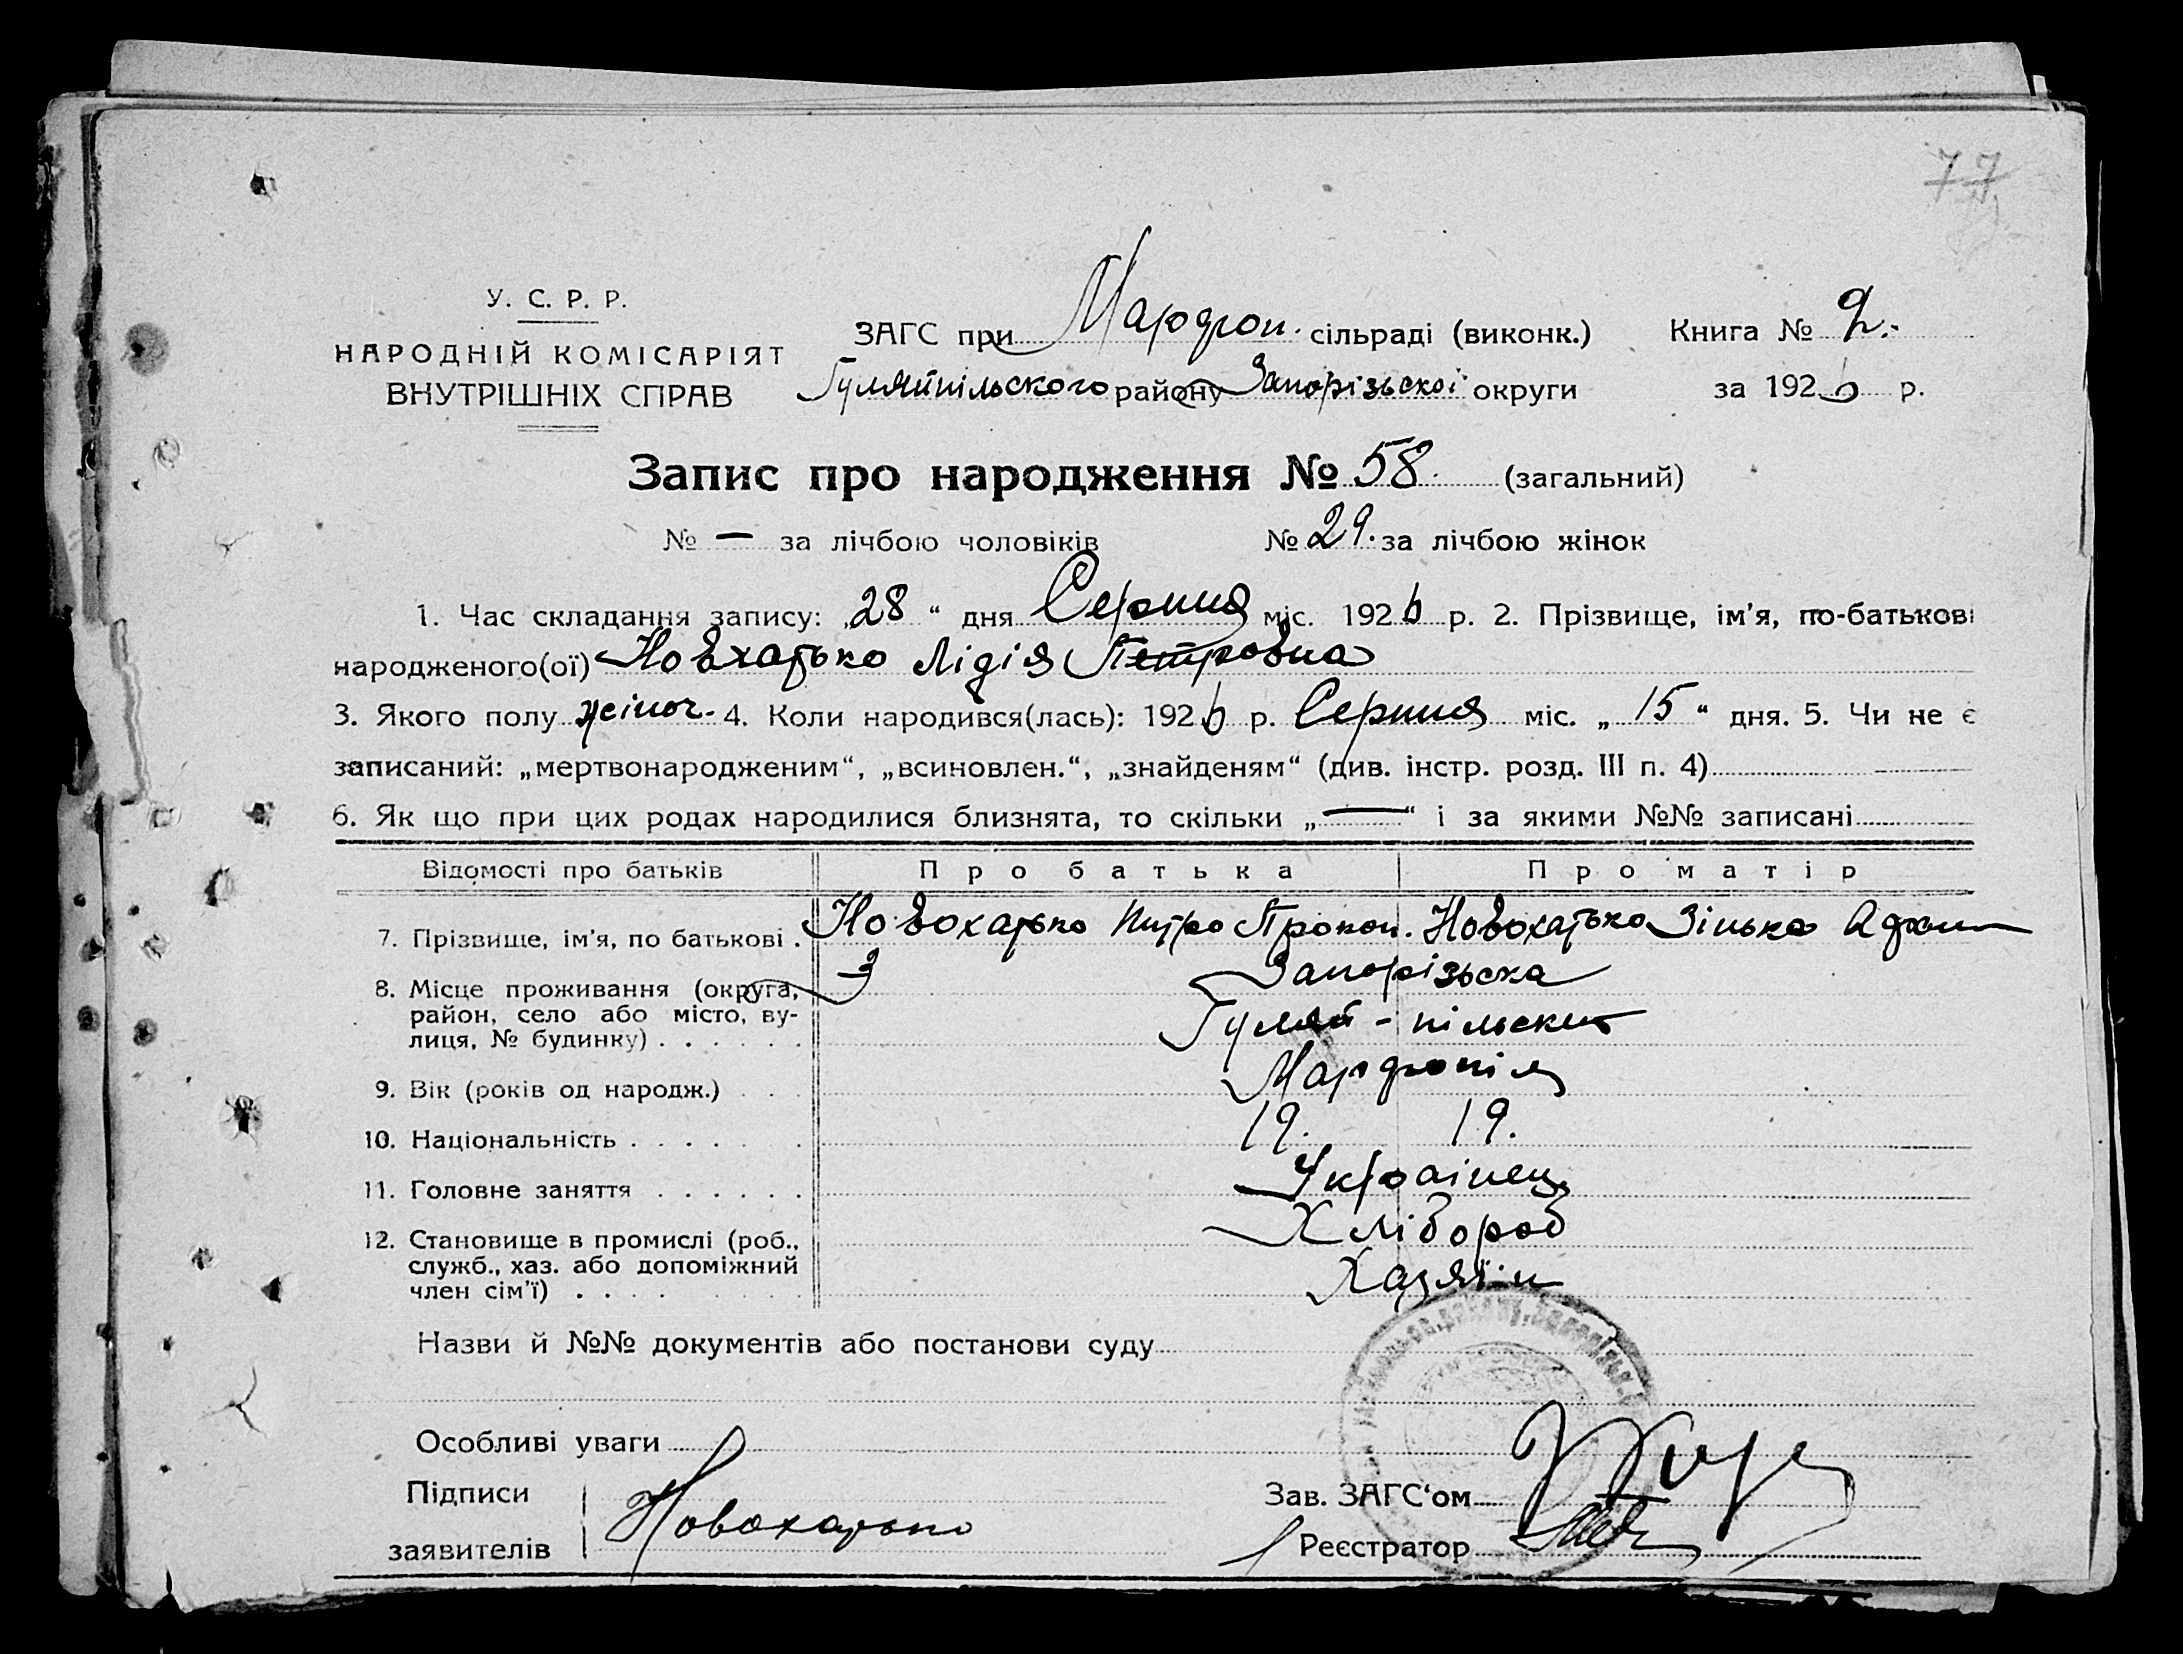 77
У. С. Р. Р.
НАРОДНІЙ КОМІСАРІЯТ
ВНУТРІШНІХ СПРАВ
ЗАГС при Марфоп. сільраді (виконк.) Книга № 2.
Гуляйпільского району Запорізьскоі округи за 1926 р.
Запис про народження № 58. (загальний)
№ — за лічбою чоловіків № 29. за лічбою жінок
1. Час складання запису: „28“ дня Серпня міс. 1926 р. 2. Прізвище, ім'я, по-батькові
народженого(ої) Новхатько Лідія Петровна
3. Якого полу жіноч. 4. Коли народився(лась): 1926 р. Серпня міс. „15“ дня. 5. Чи не є
записаний: „мертвонародженим“, „всиновлен.“, „знайденям“ (див. інстр. розд. III п. 4)
6. Як що при цих родах народилися близнята, то скільки „—“ і за якими №№ записані
Відомості про батьків Про батька Про матір
7. Прізвище, ім'я, по батькові . Новохатько Питро Прокоп. Новохатько Зінька
8. Місце проживання (округа, З Запорізьска
район, село або місто, ву- Гуляй-пільский
лиця, № будинку) . . . . . .
Марфопіль
9. Вік (років од народж.) . . .
19. 19.
10. Національність . . . . . .
Украінец
11. Головне заняття . . . . . .
Хлібороб
12. Становище в промислі (роб.,
служб., хаз. або допоміжний Хазяїн
член сім'ї) . . . . . . . .
Назви й №№ документів або постанови суду
Особливі уваги
Підписи
заявителів Новохатько
Зав. ЗАГС'ом
Реєстратор